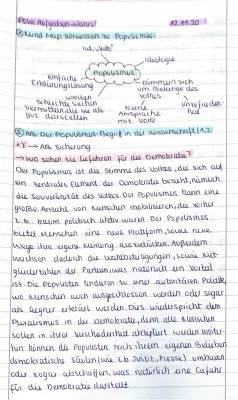 Powi Aufgaben – Kurs!
12.11.20
① Mind Map Vorwissen zu Populismus:
Ideologie
einfache
Erklärungslösung
Populismus
kümmern sich
um Belange des
Volkes
wollen
schlechte Sachen
vermitteln, die sie als
gut darstellen
keine
Absprache
mit Volk
unzufrieden
② AB: Der Populismus-Begriff in der Wissenschaft
→ AB Sicherung
→ Wo sehen Sie Gefahren für die Demokratie?
Der Populismus ist die Stimme des Volkes, die sich auf
ein zentrales Element der Demokratie bezieht, nämlich
die Souveränität des Volkes. Der Populismus kann eine
große Anzahl von Menschen mobilisieren, die vorher
z.B. kaum politisch aktiv waren. Der Populismus
bietet Menschen eine neue Plattform, sowie neue
Wege ihre eigene Meinung auszudrücken. Außerdem
wachsen dadurch die Wahlbeteiligungen, sowie Mit-
gliederzahlen der Parteien, was natürlich ein Vorteil
ist. Die Populisten tendieren zu einer autoritären Politik,
wo Menschen auch ausgeschlossen werden oder sogar
als Gegner erklärt werden. Dies widerspricht dem
Pluralismus in der Demokratie, denn alle Menschen
sollen in ihrer Verschiedenheit akzeptiert werden. Weiter-
hin können die Populisten nach ihrem eigenen Belieben
demokratische Säulen (wie z.B. Justiz, Presse) umbauen
oder sogar abschaffen, was natürlich eine Gefahr
für die Demokratie darstellt.